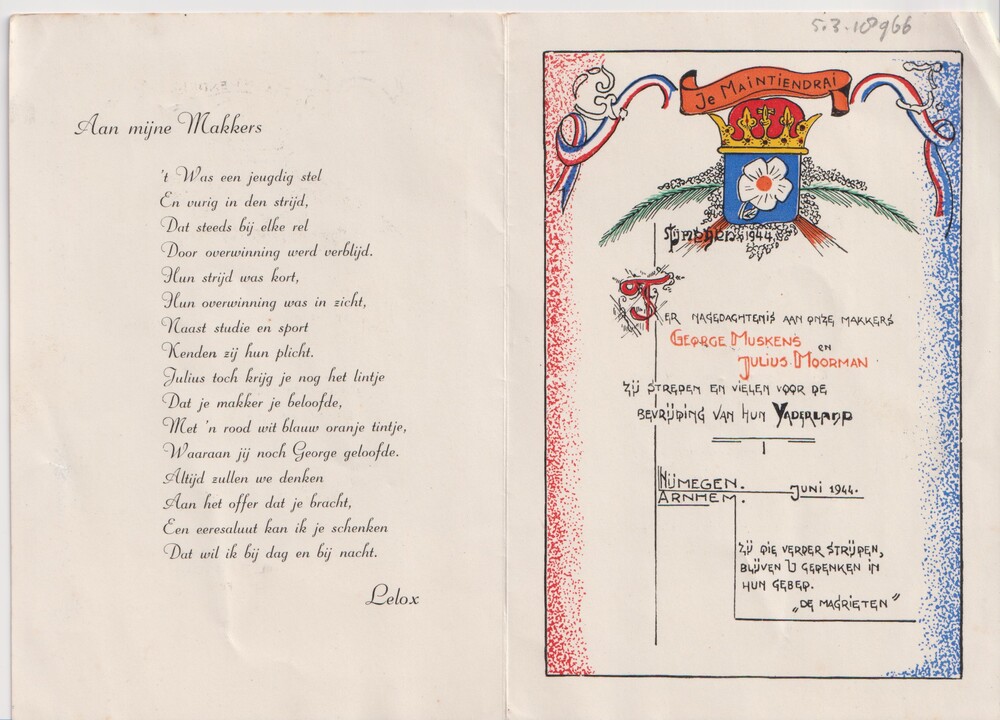 Aan mijne Makkers
't Was een jeugdig stel
En vurig in den strijd,
Dat steeds bij elke rel
Door overwinning werd verblijd.
Hun strijd was kort,
Hun overwinning was in zicht,
Naast studie en sport
Kenden zij hun plicht.
Julius toch krijg je nog het lintje
Dat je makker je beloofde,
Met 'n rood wit blauw oranje tintje,
Waaraan jij nog George geloofde.
Altijd zullen we denken
Aan het offer dat je bracht,
Een eeresaluut kan ik je schenken
Dat wil ik bij dag en bij nacht.
Lelox
5.3.18966
Je Maintiendrai
1944
Ter nagedachtenis aan onze makkers
George Muskens
en
Julius Moorman
Zij streden en vielen voor de
bevrijding van hun Vaderland
Nijmegen.
Arnhem.
Juni 1944.
Zij die verder strijden,
blijven U gedenken in
hun gebed.
„De Magrieten"